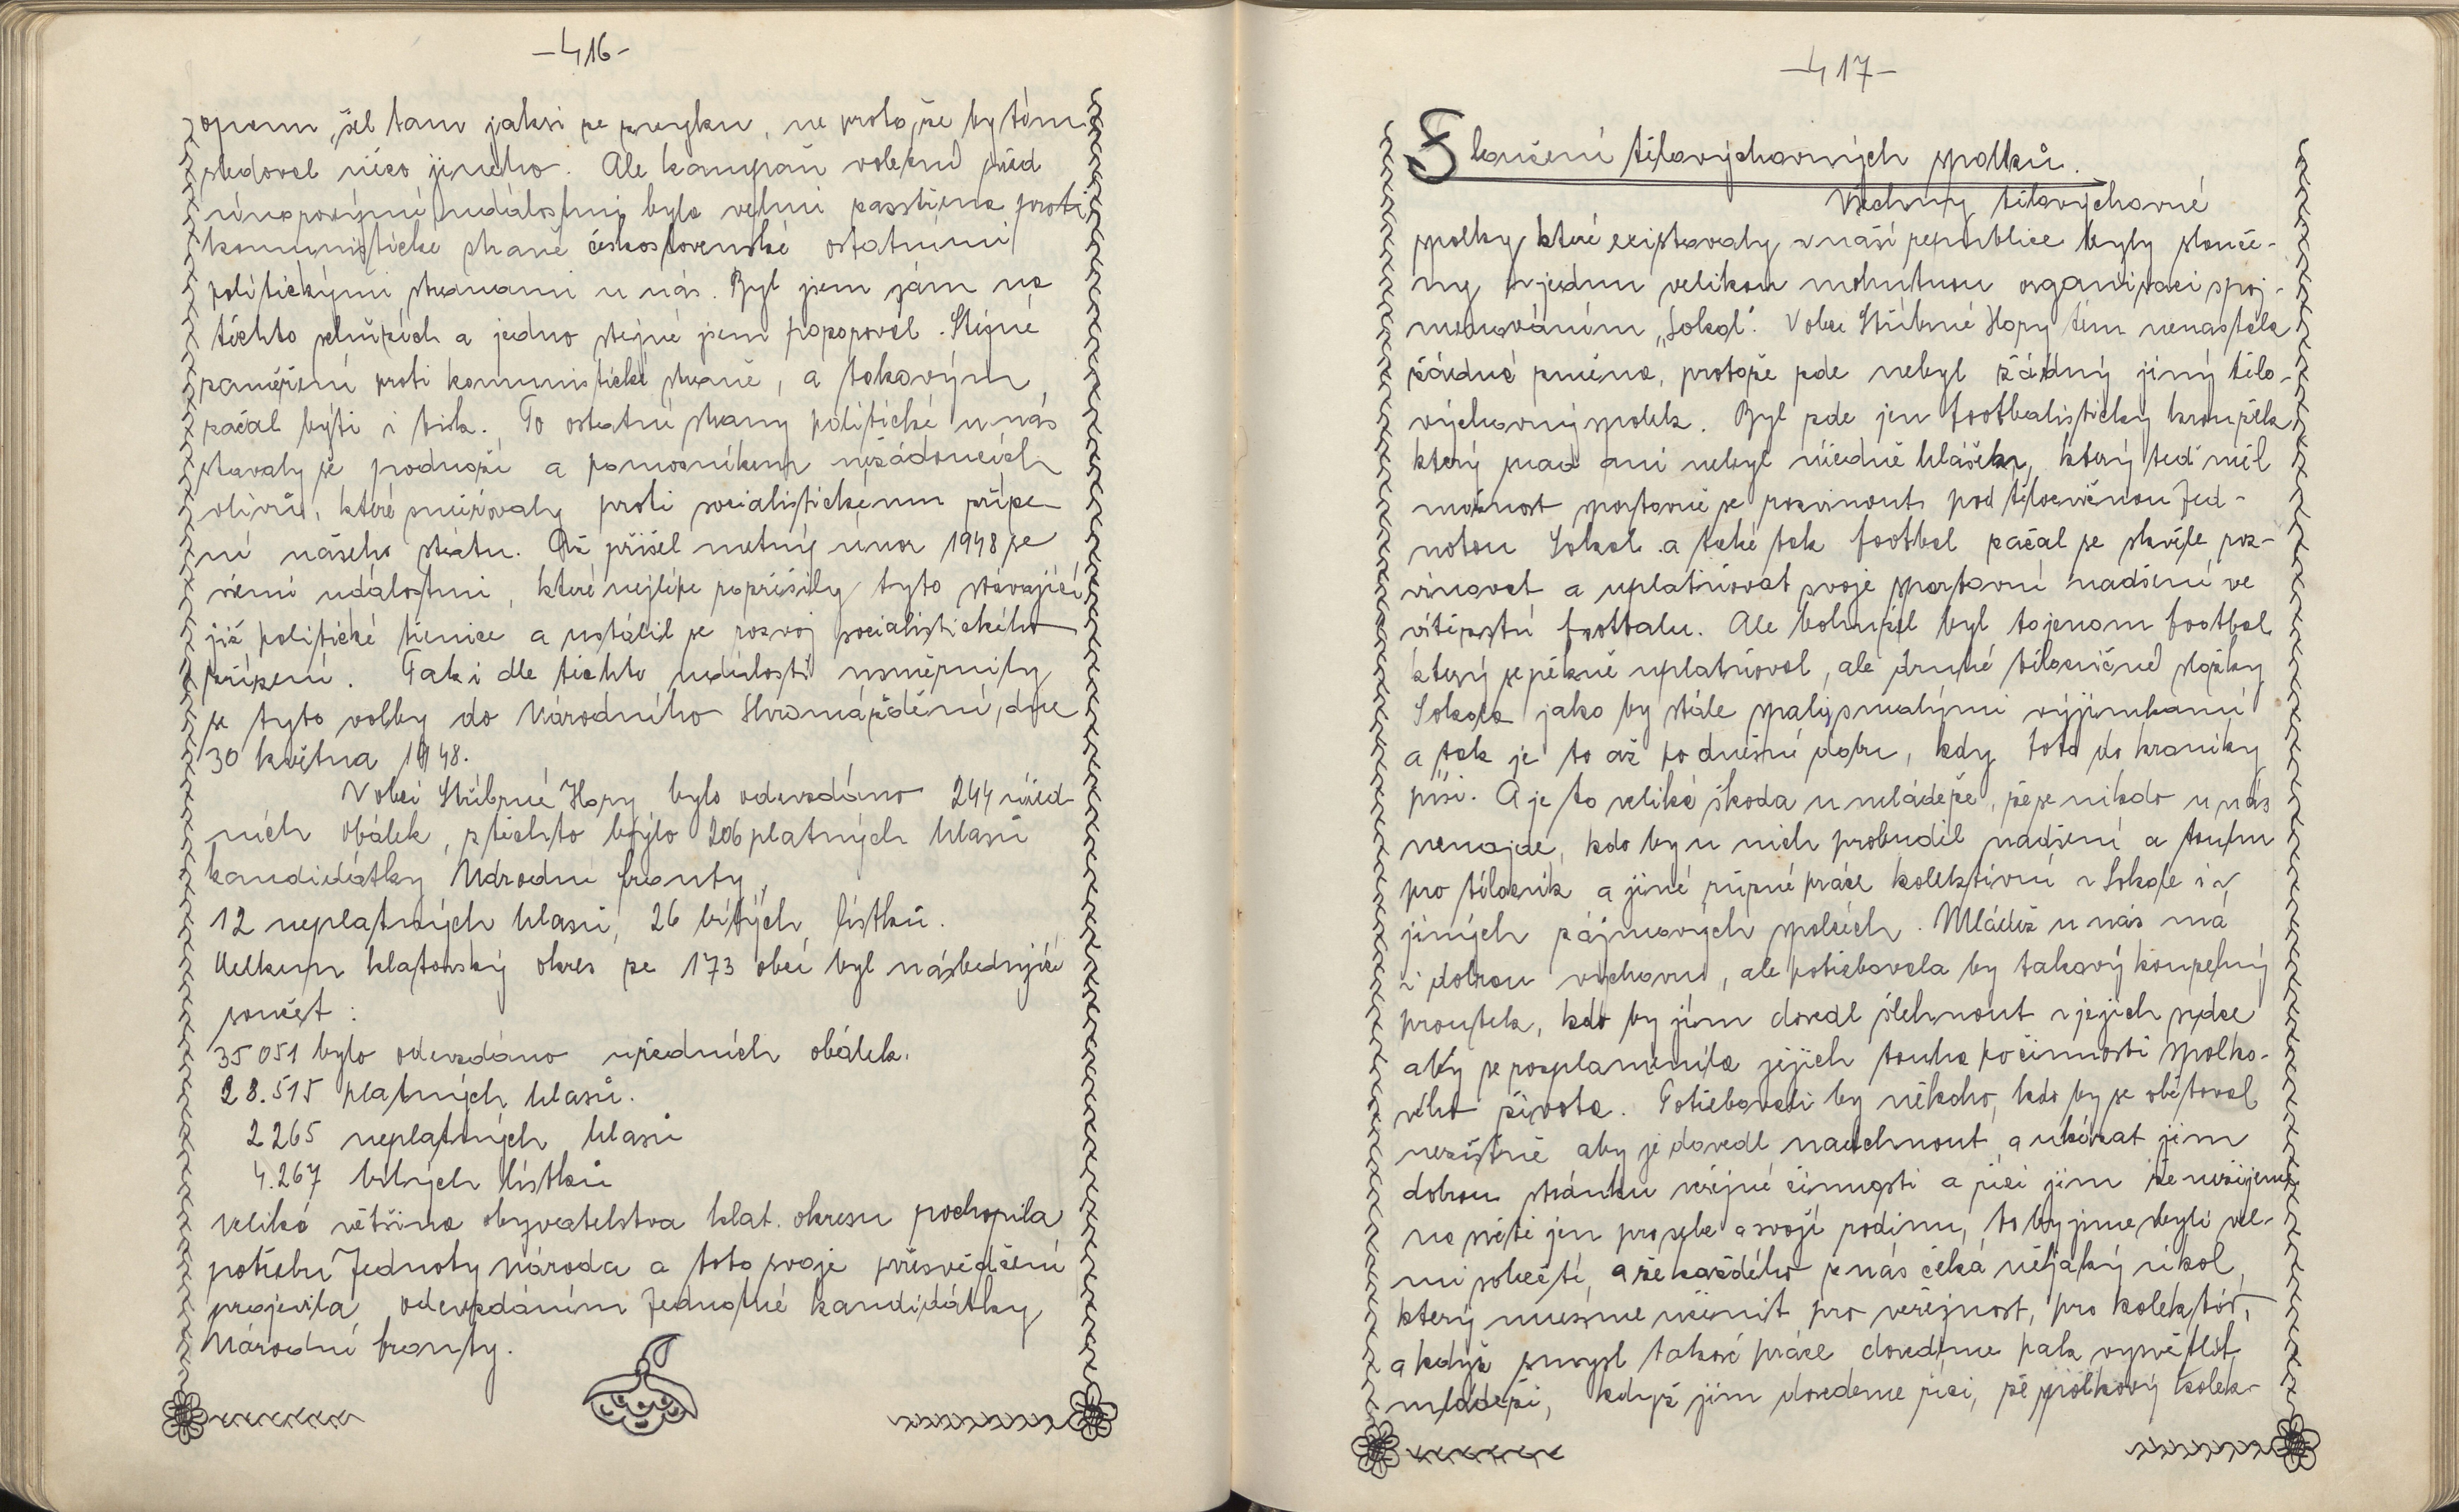 -416-
zájem, šel tam jaksi ze zvyku, ne proto, že by tím
sledoval něco jiného. Ale kampaň volební před
únorovými událostmi byla velmi zaostřena proti
komunistické straně československé ostatními
politickými stranami u nás. Byl jsem sám na
těchto schůzích a jedno stejné jsem pozoroval. Stejné
zaměření proti komunistické straně, a takovým
začal býti i tisk. To ostatní strany politické u nás
stavaly se podnoží a pomocníkem nežádoucích
vlivů, které směřovaly proti socialistickému zříze-
ní našeho státu. Až přišel metný únor 1948 se
všemi událostmi, které nejlépe rozřešily tyto stávající
již politické tienice a ustálil se rozvoj socialistického
zřízení. Tak i dle těchto událostí usměrnily
se tyto volby do Národního Shromáždění, dne
30 května 1948.
V obci Stříbrné Hory bylo odevzdáno 244 úřed-
ních obálek, z těchto bylo 206 platných hlasů
kandidátky Národní fronty,
12 neplatných hlasů, 26 bílých lístků.
Celkem klatovský okres ze 173 obcí byl následující
součet:
35 051 bylo odevzdáno uředních obálek.
28.515 platných hlasů.
2265 neplatných hlasů
4.267 bílých lístků
Veliká většina obyvatelstva klat. okresu pochopila
potřebu Jednoty národa a toto svoje přesvědčení
projevila odevzdáním Jednotné kandidátky
Národní fronty.
-417-
Sloučení tělovýchovných spolků.
Všechny tělovýchovné
spolky, které existovaly v naší republice byly slouče-
ny v jednu velikou mohutnou organisaci spoj-
menováním „Sokol". V obci Stříbrné Hory tím nenastala
žádná změna, protože zde nebyl žádný jiný tělo-
výchovný spolek. Byl zde jen footbalistický kroužek
který snad ani nebyl úředně hlášen, který teď měl
možnost sportovně se rozvinouti pod tělocvičnou Jed-
notou Sokol a také tak footbal začal se skvěle roz-
vinovat a uplatňovat svoje sportovní nadšení ve
vítězství footbalu. Ale bohužel byl to jenom footbal
který se pěkně uplatňoval, ale druhé tělocvičné složky
Sokola jako by stále spaly, s malými výjimkami
a tak je to až po dnešní dobu, kdy toto do kroniky
píši. A je to veliká škoda u mládeže, že se nikdo u nás
nenajde, kdo by u nich probudil nadšení a touhu
pro tělocvik a jiné různé práce kolektivní v Sokole i v
jiných zájmových spolcích. Mládež u nás má
i dobrou výchovu, ale potřebovala by takový kouzelný
proutek, kdo by jím dovedl šlehnout v jejich srdce
aby se rozplamenila jejich touha po činnosti spolko-
vého života. Potřebovali by někoho, kdo by se obětoval
nezištně aby je dovedl nadchnout a ukázat jim
dobrou stránku veřejné činnosti a říci jim že nežijeme
na světě jen pro sebe a svojí rodinu, to by jsme byli vel-
mi sobečtí, a že každého z nás čeká nějaký úkol,
který musíme učinit pro veřejnost, pro kolektiv,
a když smysl takové práce dovedeme pak vysvětlit
mládeži, když jim dovedeme říci, že spolkový kolek-